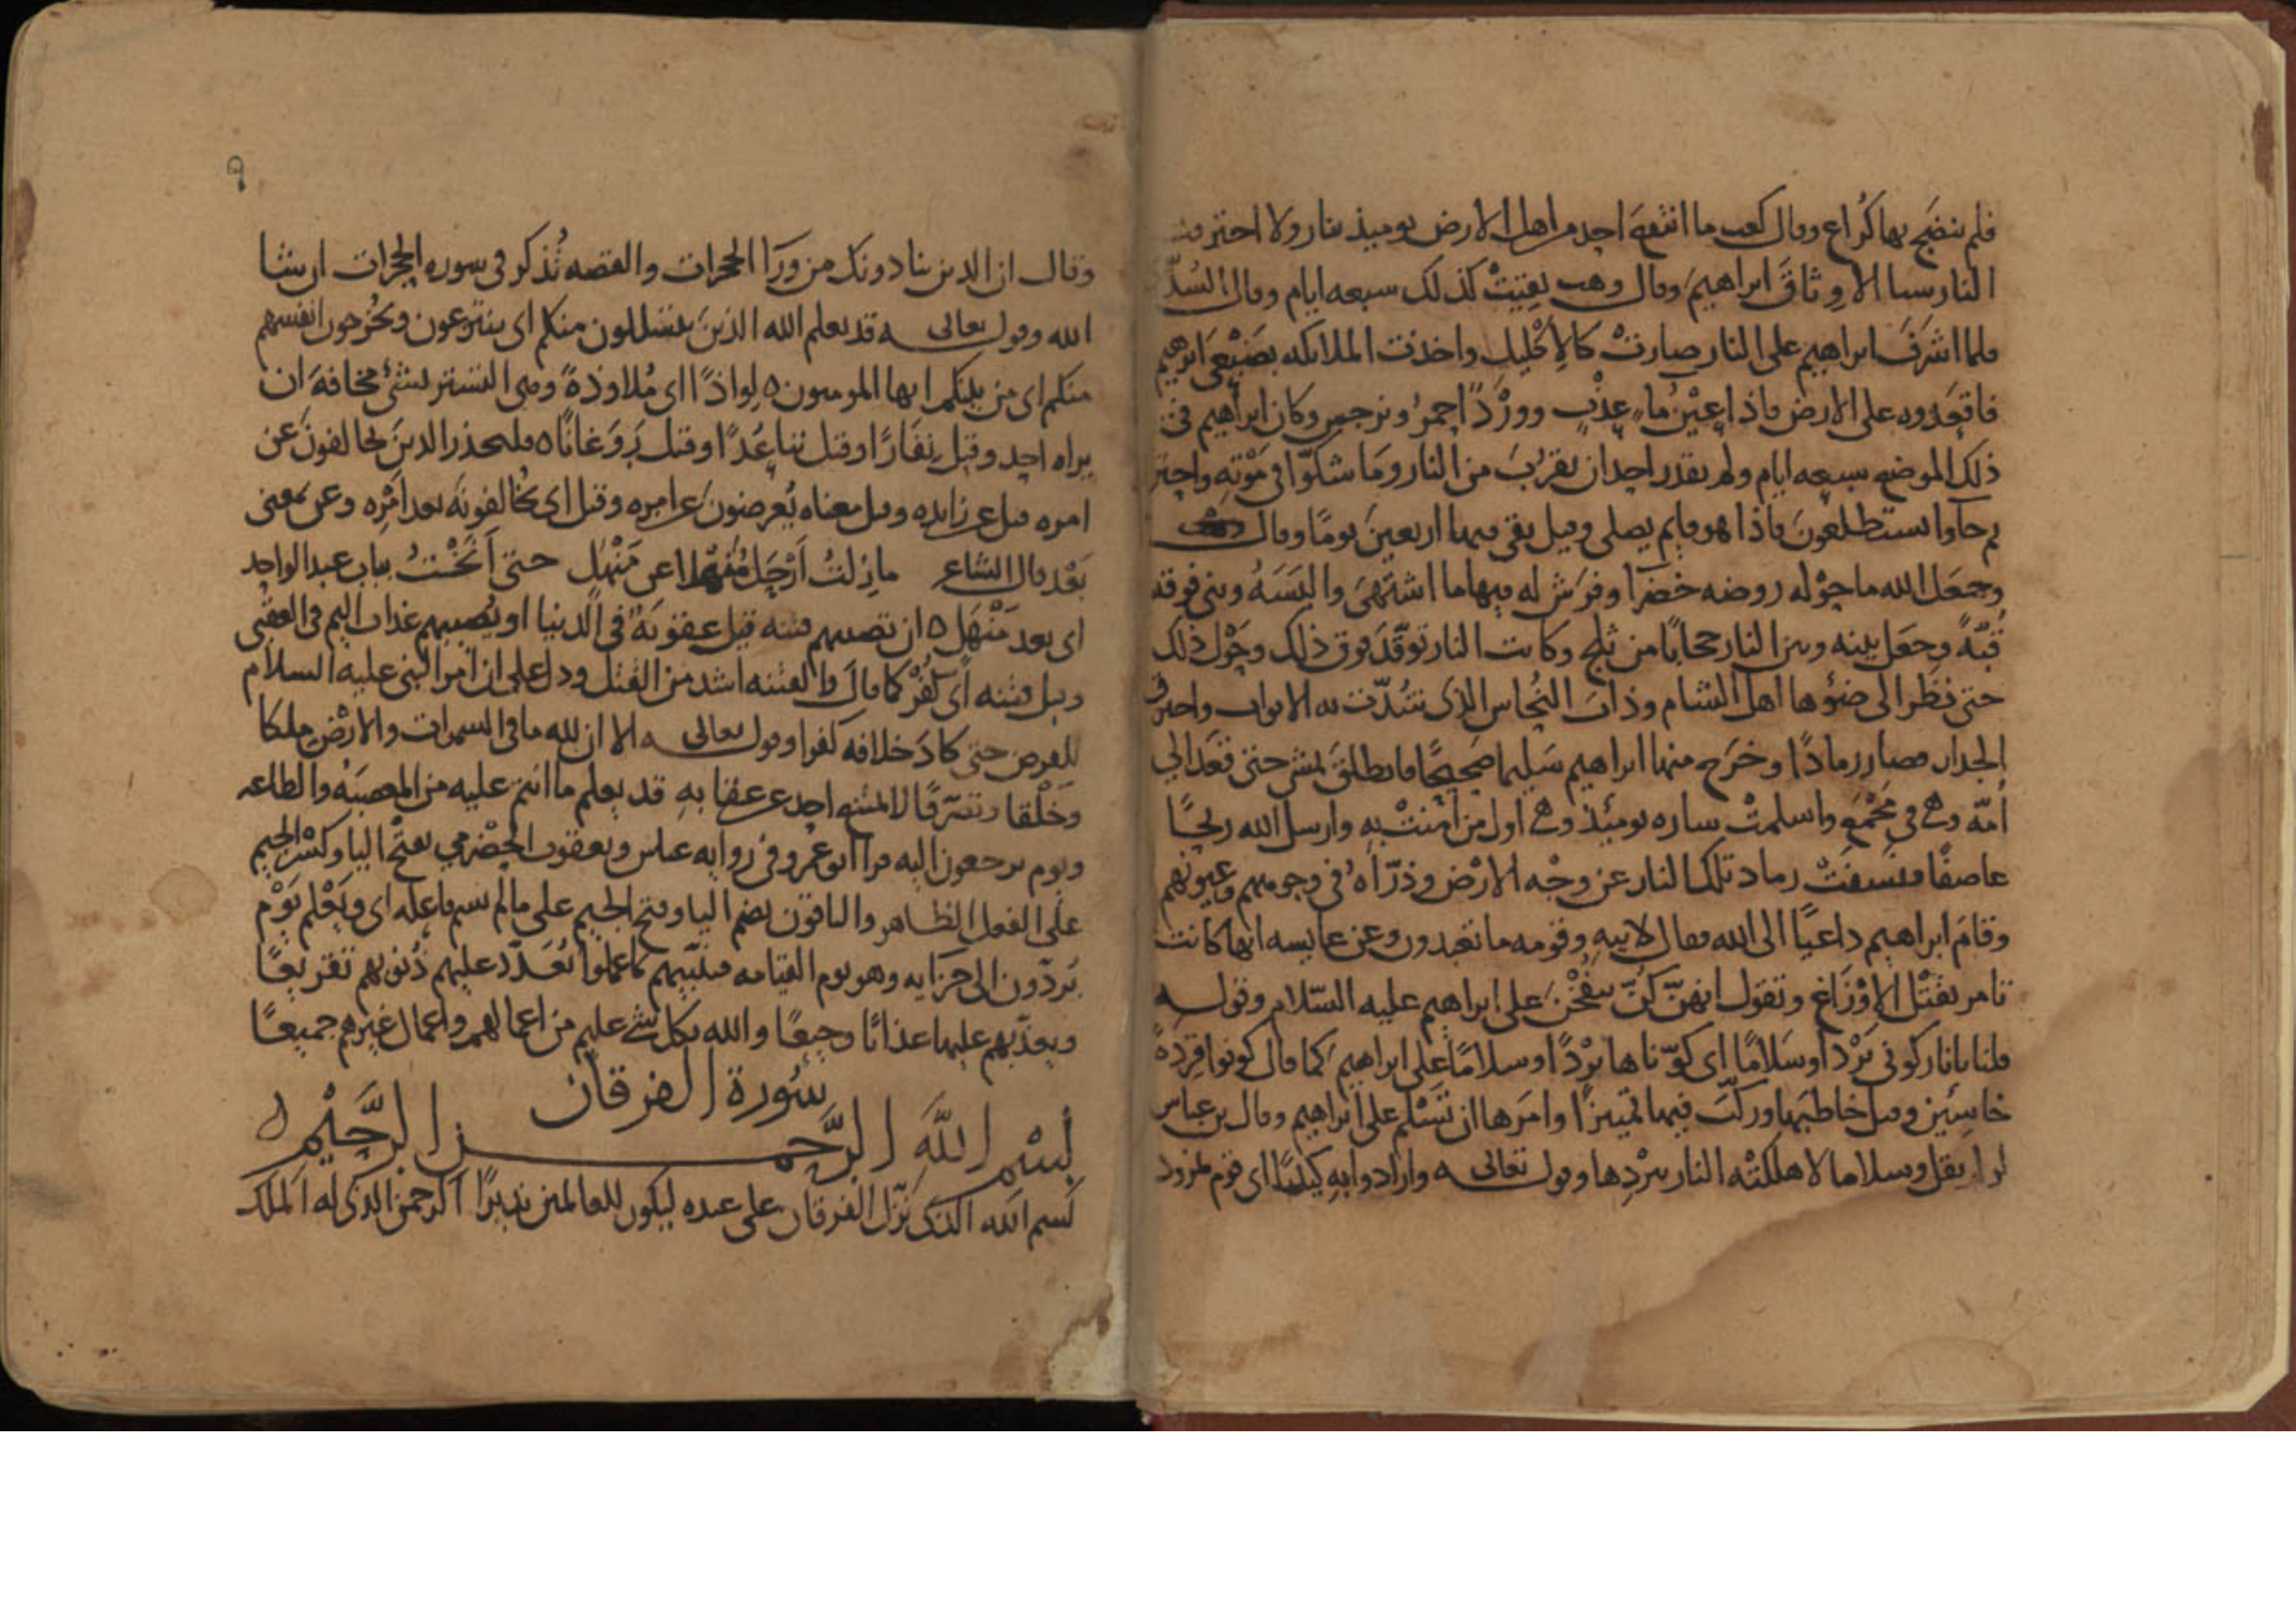 فلم ينضج بها كُراع وقال كعب ما انتفع احد من اهل الارض يوميذ بنار ولا احترقت
النار سيا الا وِثاقَ ابراهيم وقال وهب بقيتْ كذلك سبعه ايام وقال السُدّي
فلما اشرَفَ ابراهيم على النار صارتْ كالإكْليل واخذت الملايكه بضَبْعَي ابرهيم
فاقعَدوه على الارض فاذا عَيْنُ ماءٍ عذْبٍ ووَرْدًا احمرُ ونرجس وكان ابراهيم في
ذلك الموضع سبعه ايام ولم يقدر احد ان يقرُبَ من النار وما شكوّا في مَوْتِهِ واحتر
ثم جآوا يستطلعونَ فاذا هو قايم يصلي وقيل بقي فيها اربعينَ يومًا وقال
وجعَل الله ما حوْله روضه خضرا وفرَش له فيها ما اشتَهَى والبَسَهُ وبنى فوقه
قُبّةً وجعَل بينه وبين النار حجابًا من ثلج وكانت النار توقّدَ فوق ذلك وحَوْل ذلك
حتى نظر الى ضوْها اهل الشام وذابَ النُحاس الذى سُدّت به الابواب واحترق
الجدار فصار رمادًا وخرَج منها ابراهيم سَليما صَحيحًا فانطلقَ يمشى حتى قعَد الي
اُمّه وهي في مَجْمَعٍ واسلمتْ ساره يوميذٍ وهي اول من آمنتْ بهِ وارسل الله ريحًا
عاصفًا فنَسفَتْ رماد تلك النار عن وجْه الارْض وذَرّاهُ في وجوههم وعيونهم
وقامَ ابراهيم داعيًا الى الله فقال لابيهِ وقومه ما تعبدون وعن عايسه انها كانت
تامر بقَتْل الاَوْزَاغ وتقول انهنّ كُنّ ينفُخْنَ على ابراهيم عليه السّلام وقوله
قلنا يانار كونى بَرْدًا وسَلامًا اى كوّناها برْدًا وسلامًا على ابراهيمَ كما قال كونوا قِردةً
خاسِئين وقيل خاطبَها وركّبَ فيها تمييزًا وامَرها ان تَسْلم على ابراهيم وقال بن عباس
لو لم يقل وسلاما لاهلكتْه النار ببَرْدِها وقوله تعالى وارادوا بهِ كيْدًا اى قوم نمرود
٩
وقال ان الدين ينادونك من وَرَآ الحجرات والقصه تُذكر فى سوره الحجرات ان شا
الله وقوله تعالى قد يعلم الله الذينَ يتسَلّلون منكم اى ينتزعون ويُخرجون انفسهم
منكم اى من بينكم ايها المومنون لِواذًا اى مُلاوذةً وهى التستر بشئ مخافة ان
يراه احد وقيل نِفَارًا وقيل تباعُدًا وقيل رَوَغانًا فليحذر الدينَ يخالفونَ عَن
امره قيل عن زايده وقيل معناه يُعرضون عن امره وقيل اى يُخالفونَه بعد امْرِه وعن بمعنى
بَعْد قال الشاعر ما زِلتُ اَرْحَل عن مَنْهَلٍ حتى اَنَخْتُ بباب عبد الواحد
اى بعد مَنْهَل ان تصيبهم فتنه قيل عقوبَةٌ فى الدنيا او يُصيبهم عذاب اليم فى العقبى
وقيل فتنه اى كُفْر كما قال والفتنه اشد من القتل ودل على ان امرَ النبى عليه السلام
للفرض حتى كادَ خلافه كفرا وقوله تعالى الا ان لله ما فى السموات والارْض ملكا
وخَلْقا وتصَرّفًا لا يمتنع احد عن عقابهِ قد يعلم ما انتم عليه من المعصيَةُ والطاعه
ويوم يرجعون اليه قرا ابو عَمرو فى روايه عباس ويعقوب الحَضْرمي بفتْح اليا وكسْر الجيم
على الفعل الظاهر والباقون بضم اليا وفتح الجيم على ما لم يسم فاعله اى ويَعْلم يَوْم
يُردّون الى جزآيه وهو يوم القيامه فينَبّيهم بما عملوا تُعَدّد عليهم ذُنوبهم تقريعًا
ويعذّبهم عليها عذابًا وجيعًا والله بكل شي عليم من اعمالهم واعمال غيرهم جميعًا
سُورة الفرقان
بسْم اللّهِ الرَّحمن الرَّحيْم
بسم الله الذى نزّل الفرقان على عبده ليكون للعالمين نذيرًا الرحمن الذى له الملك